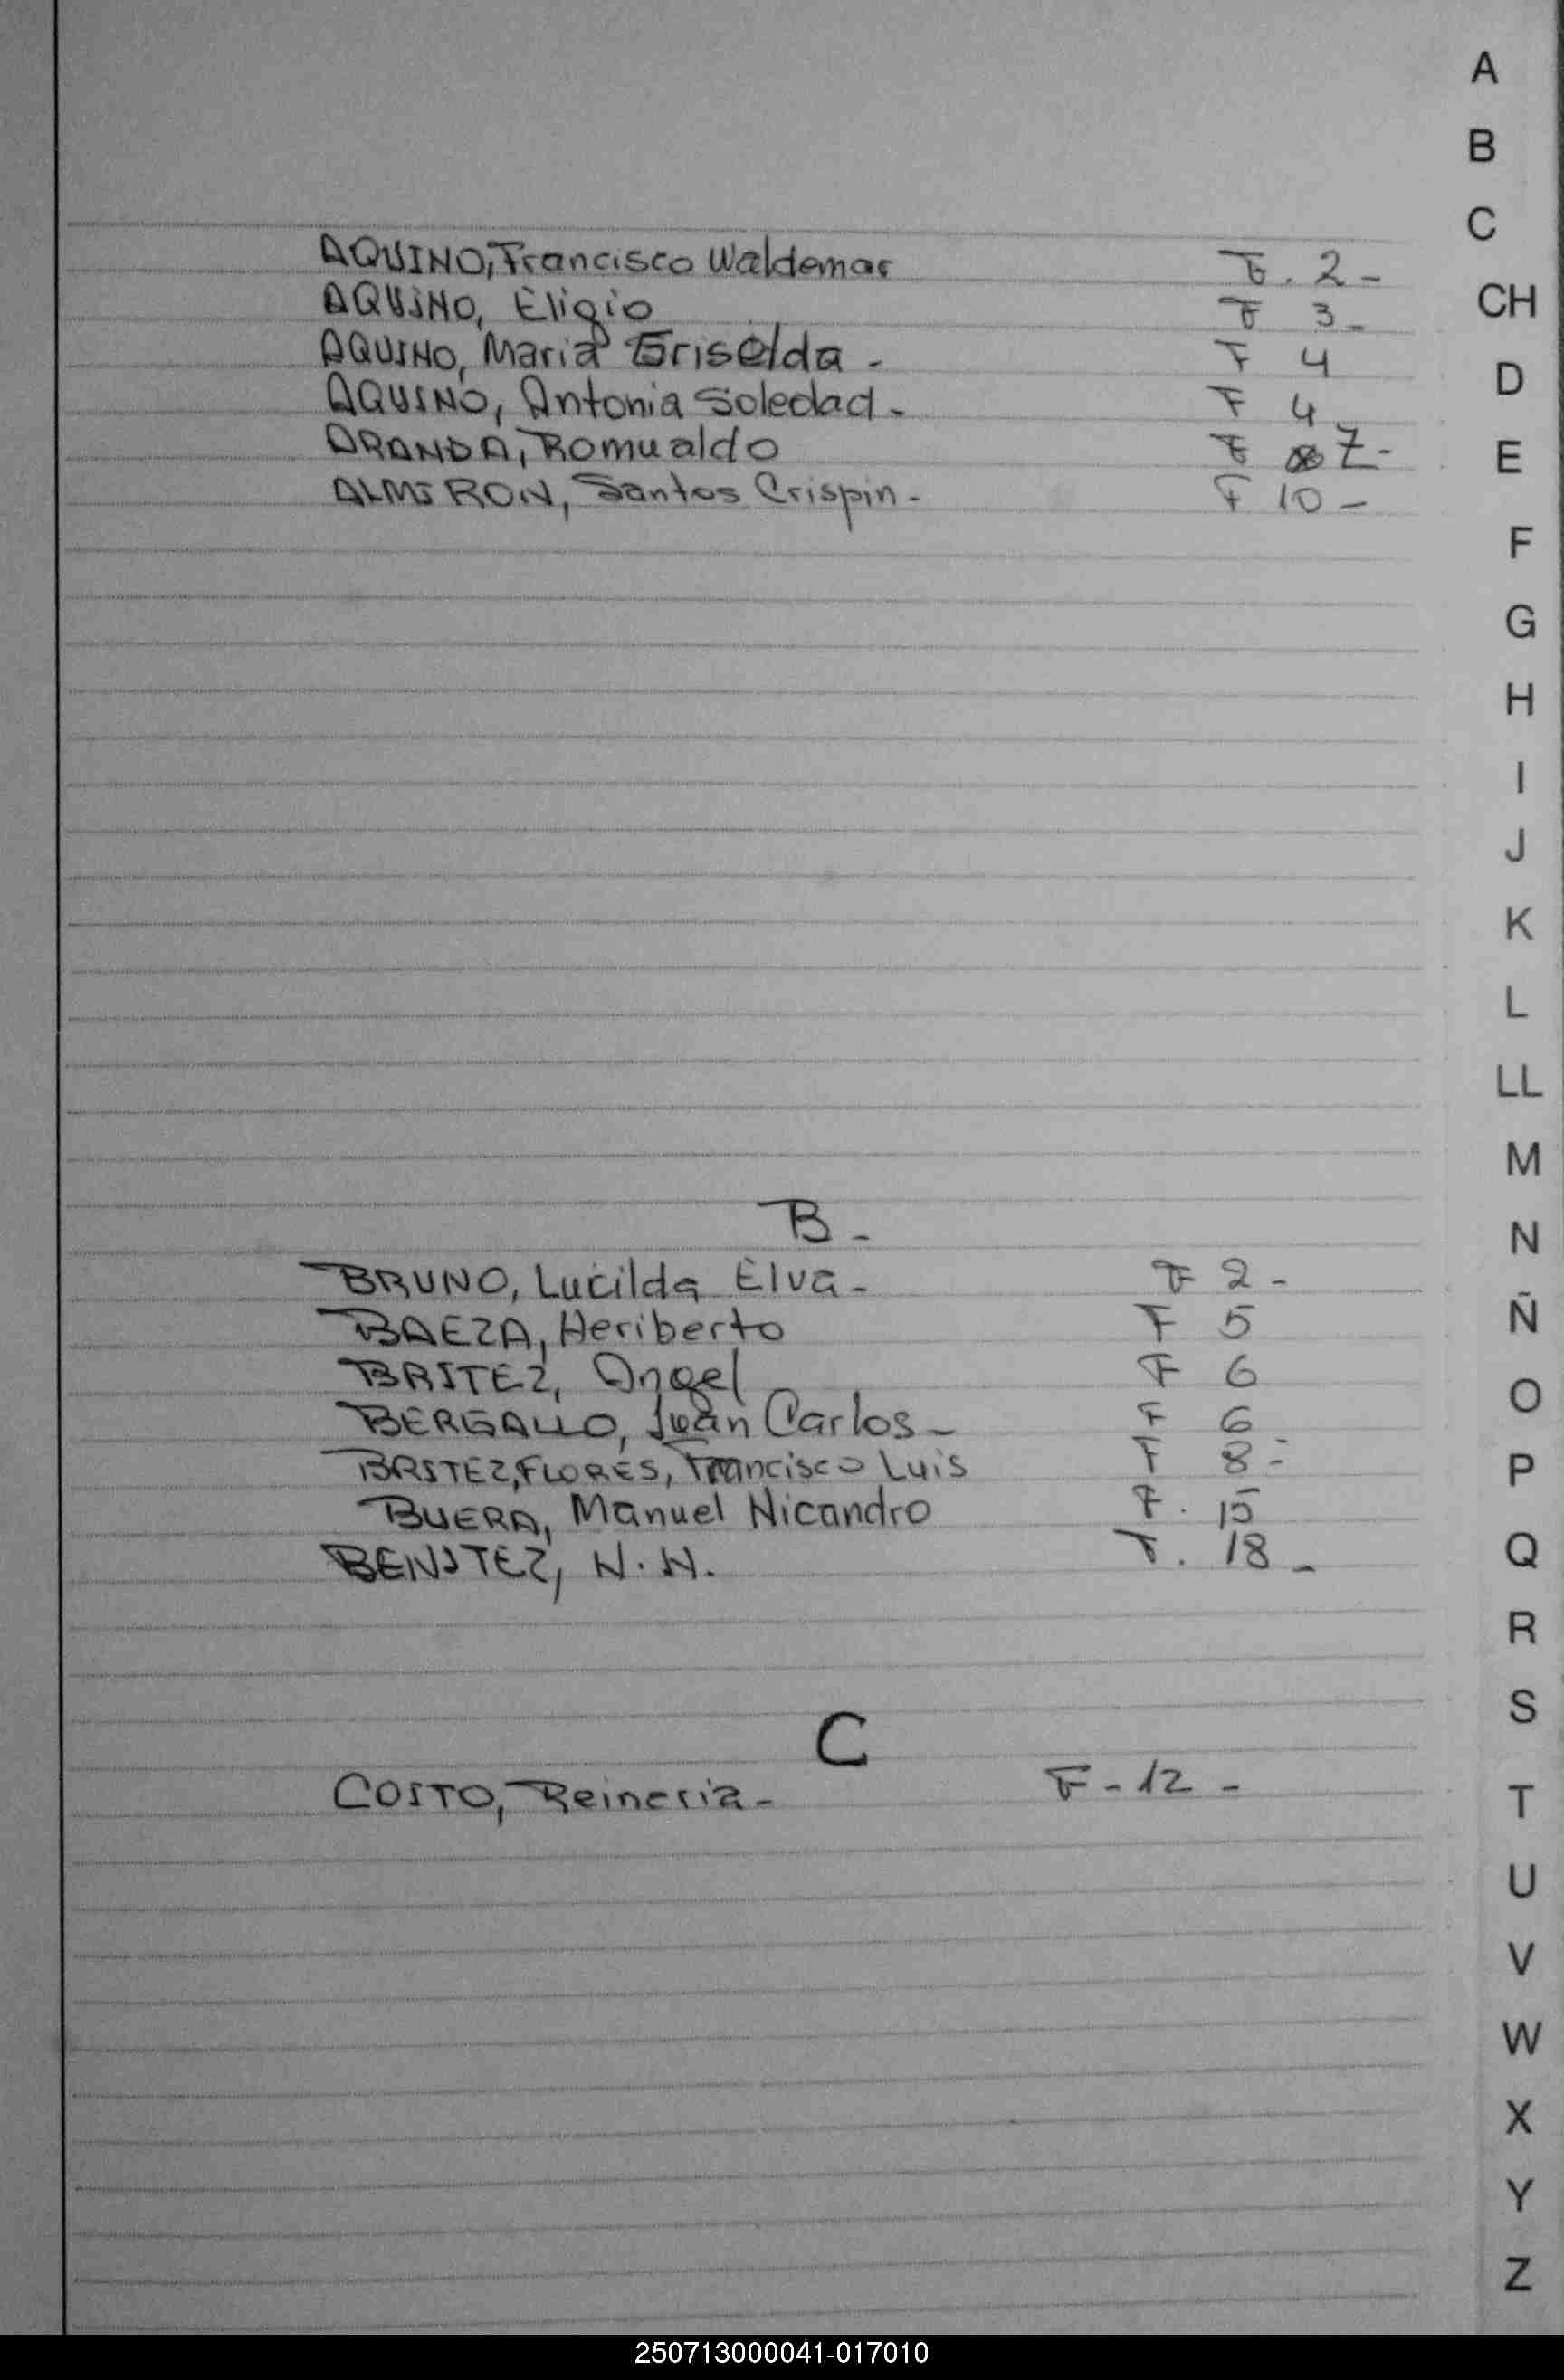 A
B
C
CH
D
E
F
G
H
I
J
K
L
LL
M
N
Ñ
O
P
Q
R
S
T
U
V
W
X
Y
Z
AQUINO, Francisco Waldemar F. 2-
AQUINO, Eligio F 3-
AQUINO, Maria Griselda - F 4
AQUINO, Antonia Soledad - F 4
ARANDA, Romualdo F 7-
ALMIRON, Santos Crispin - F 10 -
B -
BRUNO, Lucilda Elva - F 2 -
BAEZA, Heriberto F 5
BRITEZ, Angel F 6
BERGALLO, Juan Carlos - F 6
BRITEZ, FLORES, Francisco Luis F 8 -
BUERA, Manuel Nicandro F. 15
BENITEZ, N.N. F. 18 -
C
COITO, Reineria - F - 12 -
250713000041-017010